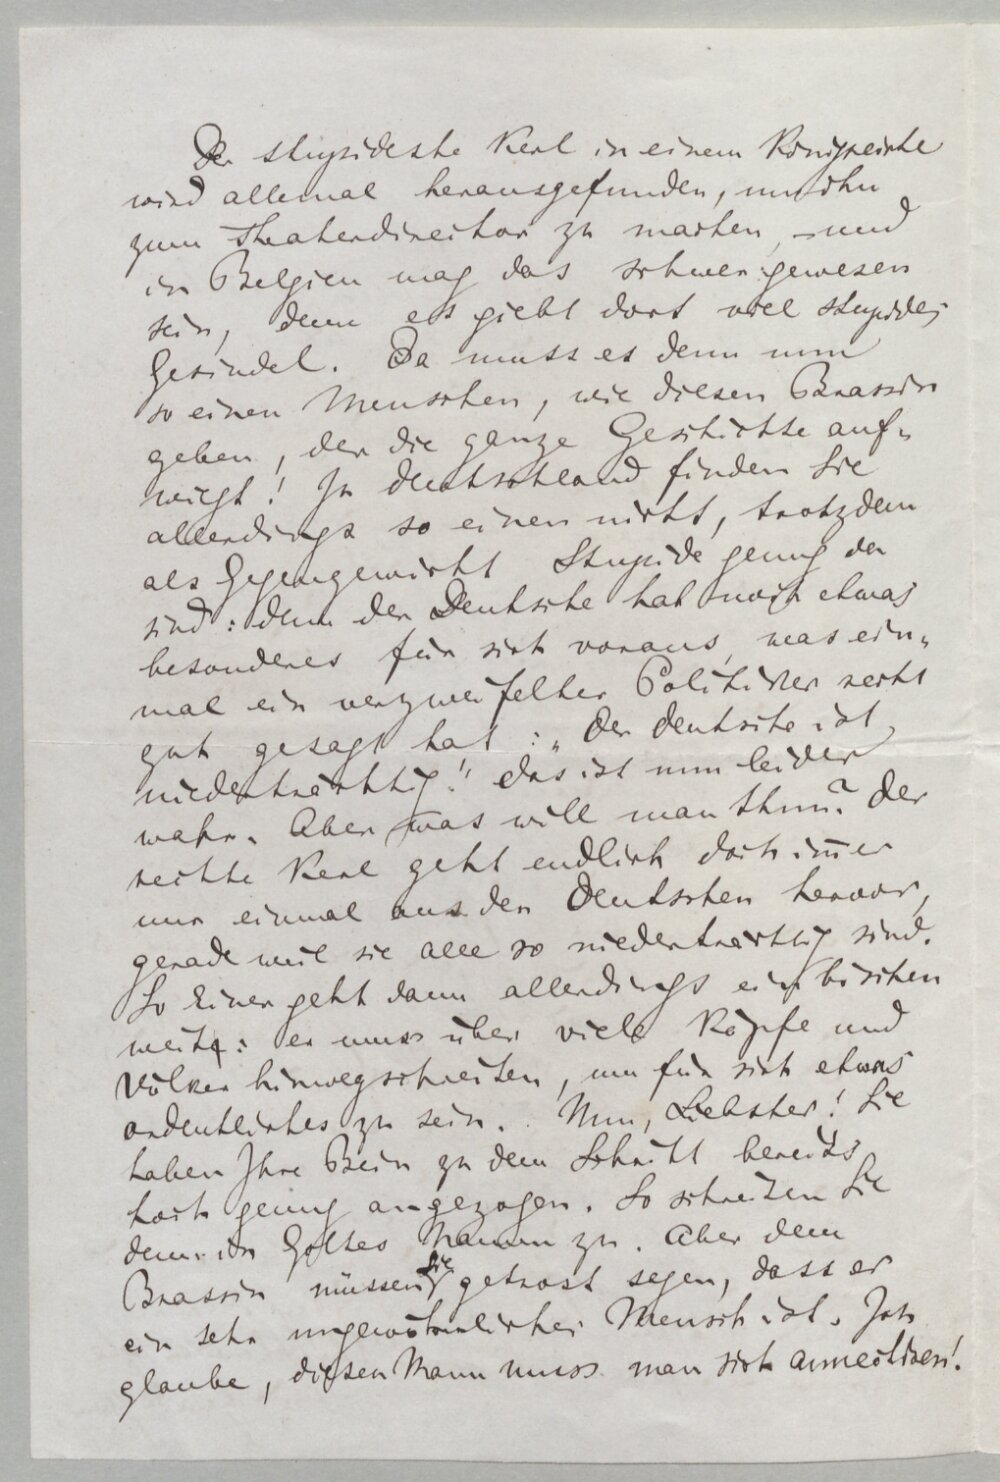 Der stupideste Kerl in einem Königreiche
wird allemal herausgefunden, um ihn
zum Theaterdirector zu machen, – und
in Belgien mag das schwer gewesen
sein, denn es giebt dort viel stupides
Gesindel. Da muss es denn nun
so einen Menschen, wie diesen Brassin
geben, der die ganze Geschichte auf-
wiegt! In Deutschland finden Sie
allerdings so einen nicht, trotzdem
als Gegengewicht Stupide genug da
sind: denn der Deutsche hat noch etwas
besonderes für sich voraus, was ein-
mal ein verzweifelter Politiker recht
gut gesagt hat: „Der Deutsche ist
niederträchtig!" das ist nun leider
wahr. Aber was will man thun? Der
rechte Kerl geht endlich doch im̅er
nur einmal aus den Deutschen hervor,
gerade weil sie alle so niederträchtig sind.
So Einer geht dann allerdings ein bischen
weit: er muss über viele Köpfe und
Völker hinwegschreiten, um für sich etwas
ordentliches zu sein. Nun, Liebster! Sie
haben Ihre Bein zu dem Schritt bereits
hoch genug angezogen. So schreiten Sie
denn in Gottes Namen zu. Aber dem
Brassin müssen Sie getrost sagen, dass er
ein sehr ungewöhnlicher Mensch ist. Ich
glaube, diesen Mann muss man sich annectiren!